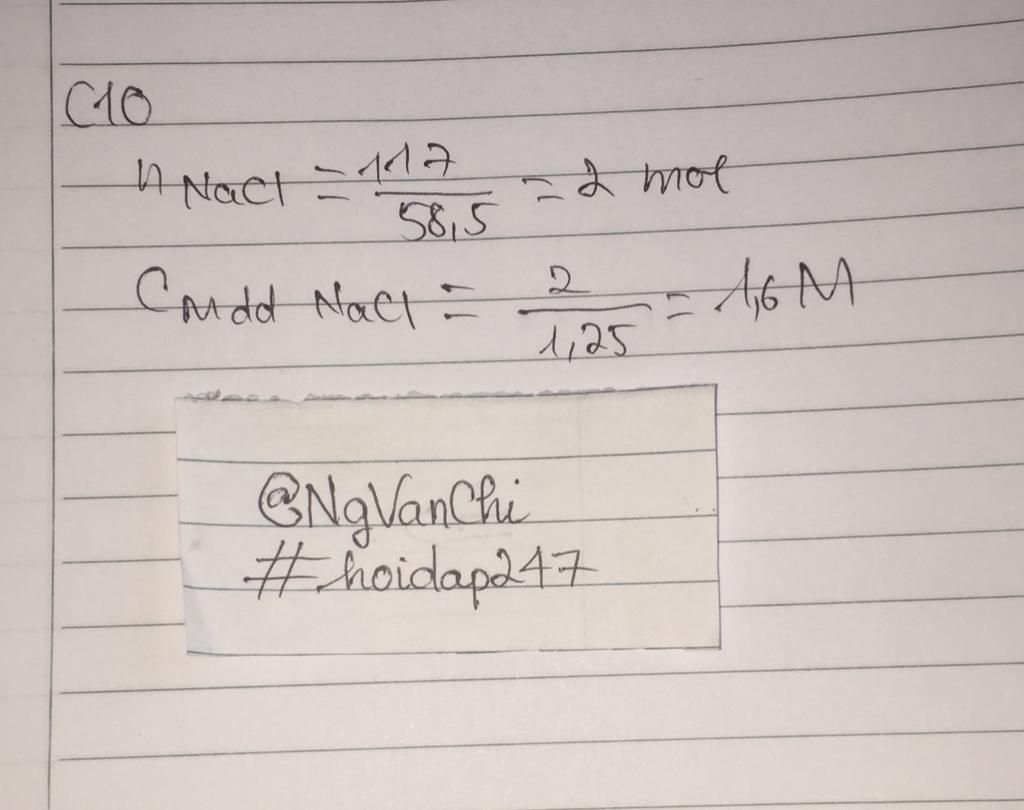 C10
n NaCl = 117/58,5 = 2 mol
CMdd NaCl = 2/1,25 = 1,6 M
@NgVanChi
#hoidap247